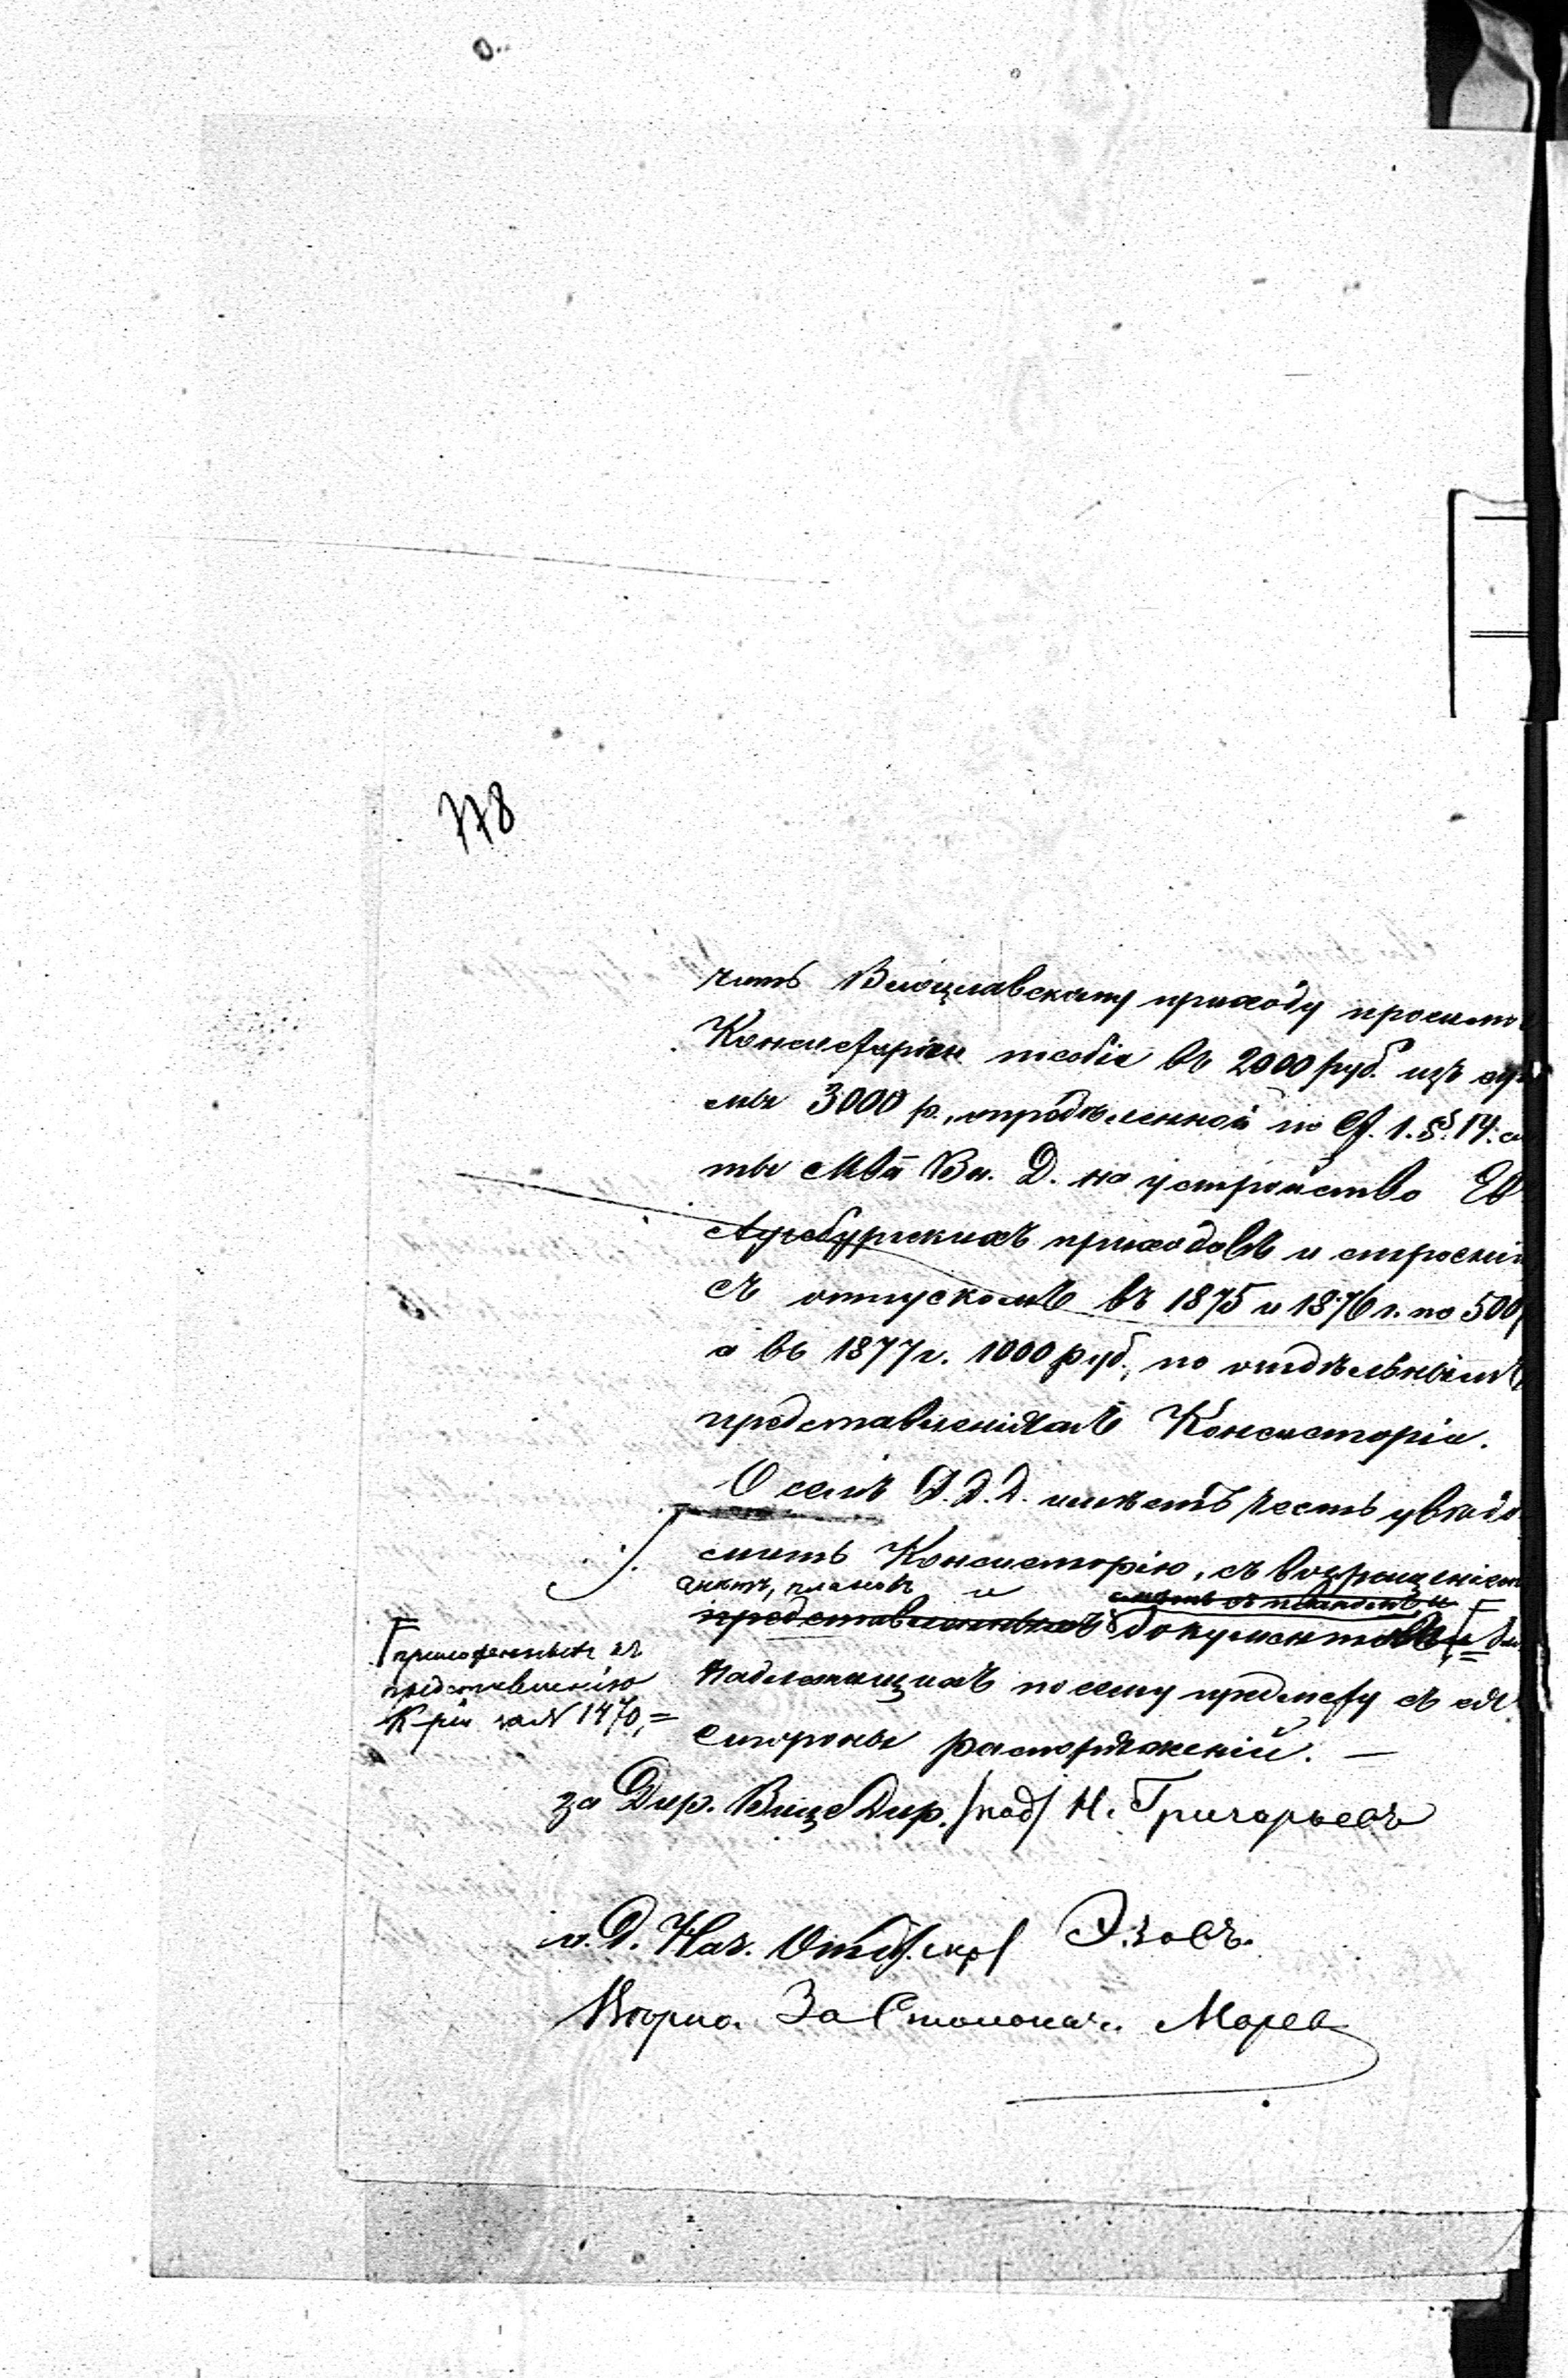 778
чить Влоцлавскому приходу просимое
Консисторіею пособіе въ 2000 руб. изъ сум
мы 3000 р., опредѣленной по ст. 1. §. 14. см
ты М-ва Вн. Д. на устройство Ев
Аугсбургскихъ приходовъ и строеній
съ отпускомъ въ 1875 и 1876 г. по 500
а въ 1877 г. 1000 руб., по отдѣльнымъ
представленіямъ Консисторіи.
О семъ Д. Д. Д. имѣетъ честь увѣдо
мить Консисторію, съ возвращеніемъ
смѣтъ, плановъ и
представленныхъ документовъ
приложенныхъ къ
представленію
К-ріи за № 1470,
надлежащихъ по сему предмету съ ея
стороны распоряженій. —
за Дир. Вице Дир. /под/ Н. Григорьевъ
и. Д. Нач. Отд. /скр/ Эзовъ.
Вѣрно. За Столонач. Марев